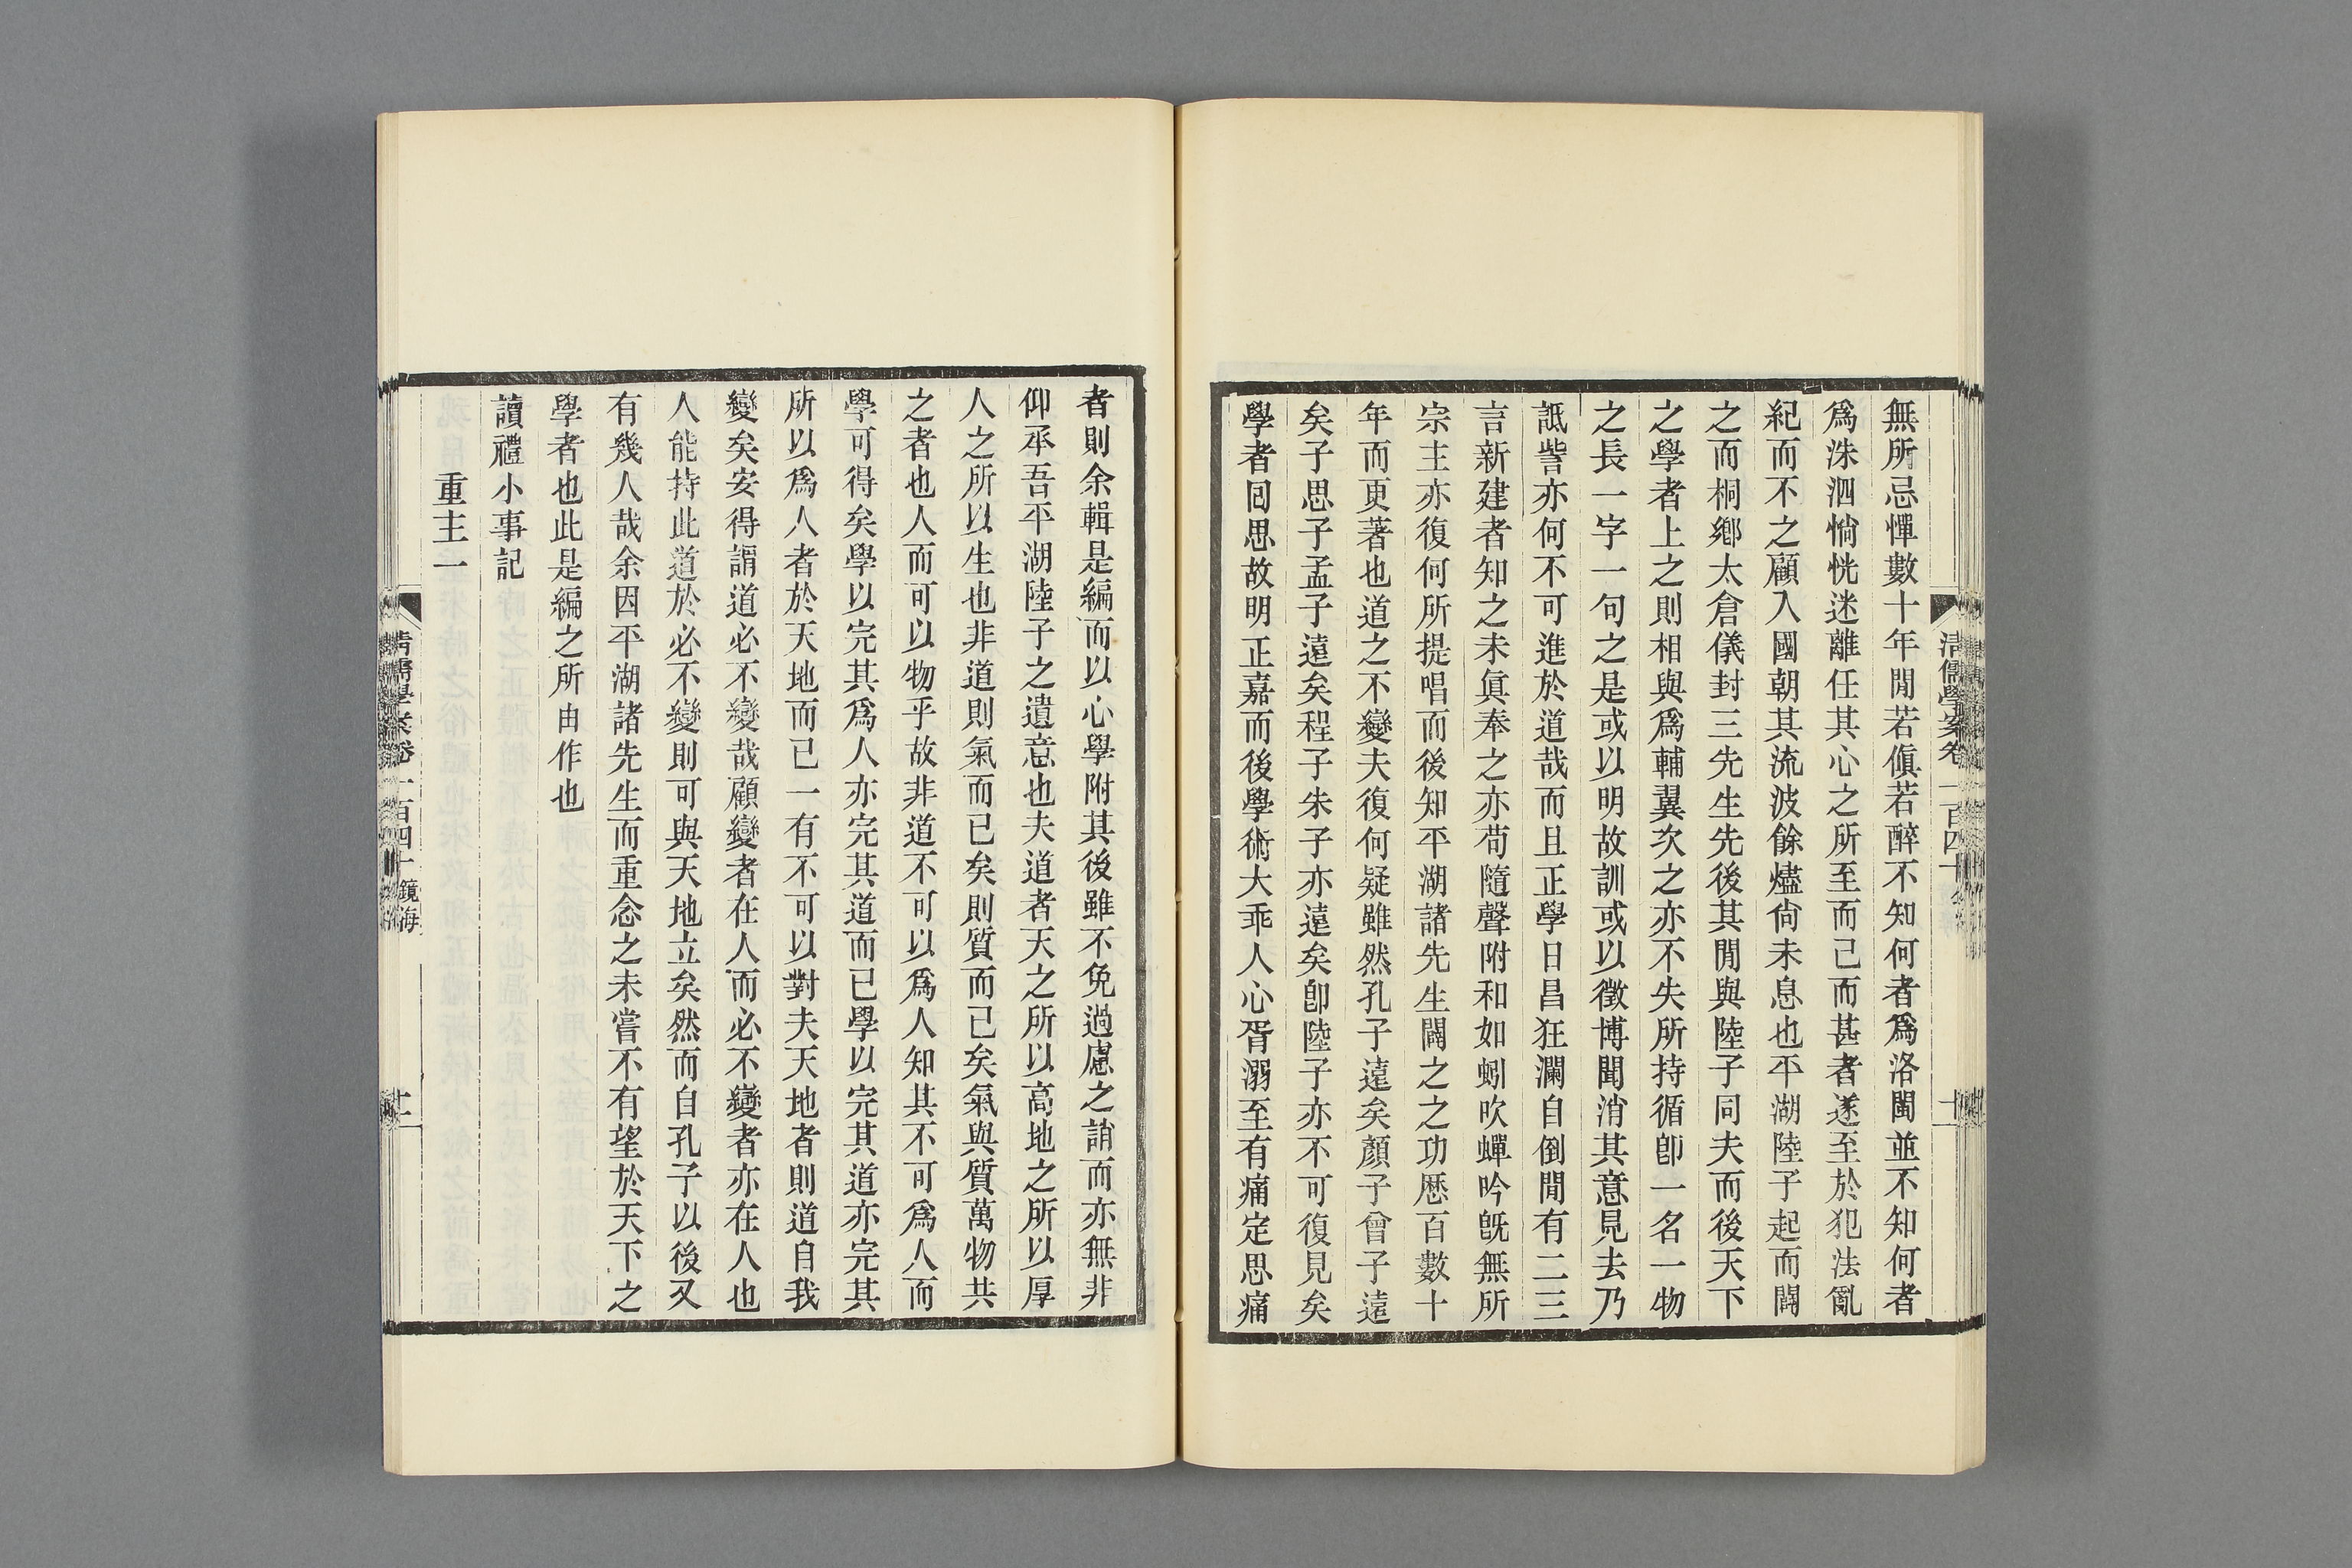 無所忌憚數十年閒若傎若醉不知何者爲洛閩並不知何者
爲洙泗惝恍迷離任其心之所至而已而甚者遂至於犯法亂
紀而不之顧入國朝其流波餘燼尙未息也平湖陸子起而闢
之而桐鄉太倉儀封三先生先後其閒與陸子同夫而後天下
之學者上之則相與爲輔翼次之亦不失所持循卽一名一物
之長一字一句之是或以明故訓或以徵博聞消其意見去乃
詆訾亦何不可進於道哉而且正學日昌狂瀾自倒閒有二三
言新建者知之未眞奉之亦苟隨聲附和如蚓吹蟬吟旣無所
宗主亦復何所提唱而後知平湖諸先生闢之之功歷百數十
年而更著也道之不變夫復何疑雖然孔子遠矣顏子曾子遠
矣子思子孟子遠矣程子朱子亦遠矣卽陸子亦不可復見矣
學者回思故明正嘉而後學術大乖人心胥溺至有痛定思痛
清儒學案卷一百四十
十一
者則余輯是編而以心學附其後雖不免過慮之誚而亦無非
仰承吾平湖陸子之遺意也夫道者天之所以高地之所以厚
人之所以生也非道則氣而已矣則質而已矣氣與質萬物共
之者也人而可以物乎故非道不可以爲人知其不可爲人而
學可得矣學以完其爲人亦完其道而已學以完其道亦完其
所以爲人者於天地而已一有不可以對夫天地者則道自我
變矣安得謂道必不變哉顧變者在人而必不變者亦在人也
人能持此道於必不變則可與天地立矣然而自孔子以後又
有幾人哉余因平湖諸先生而重念之未嘗不有望於天下之
學者也此是編之所由作也
讀禮小事記
重主一
清儒學案卷一百四十 鏡海
十二